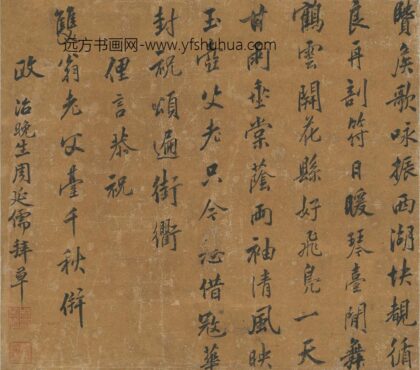 远方书画网-www.yfshuhua.com
賢矦歌咏振西湖快覩循
良再剖符日暖琴臺閒舞
鶴雲開花縣好飛凫一天
甘雨垂棠蔭兩袖清風映
玉壺父老只今咨借寇華
封祝頌遍街衢
俚言恭祝
雙翁老父臺千秋併
政
治晚生周延儒拜草